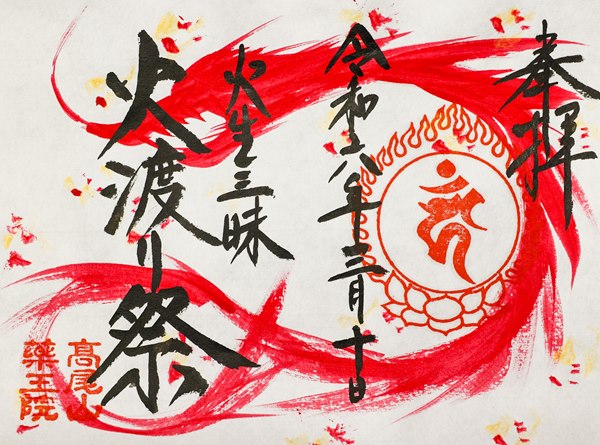 奉拝
令和六年三月十日
火生三昧
火渡り祭
高尾山
藥王院